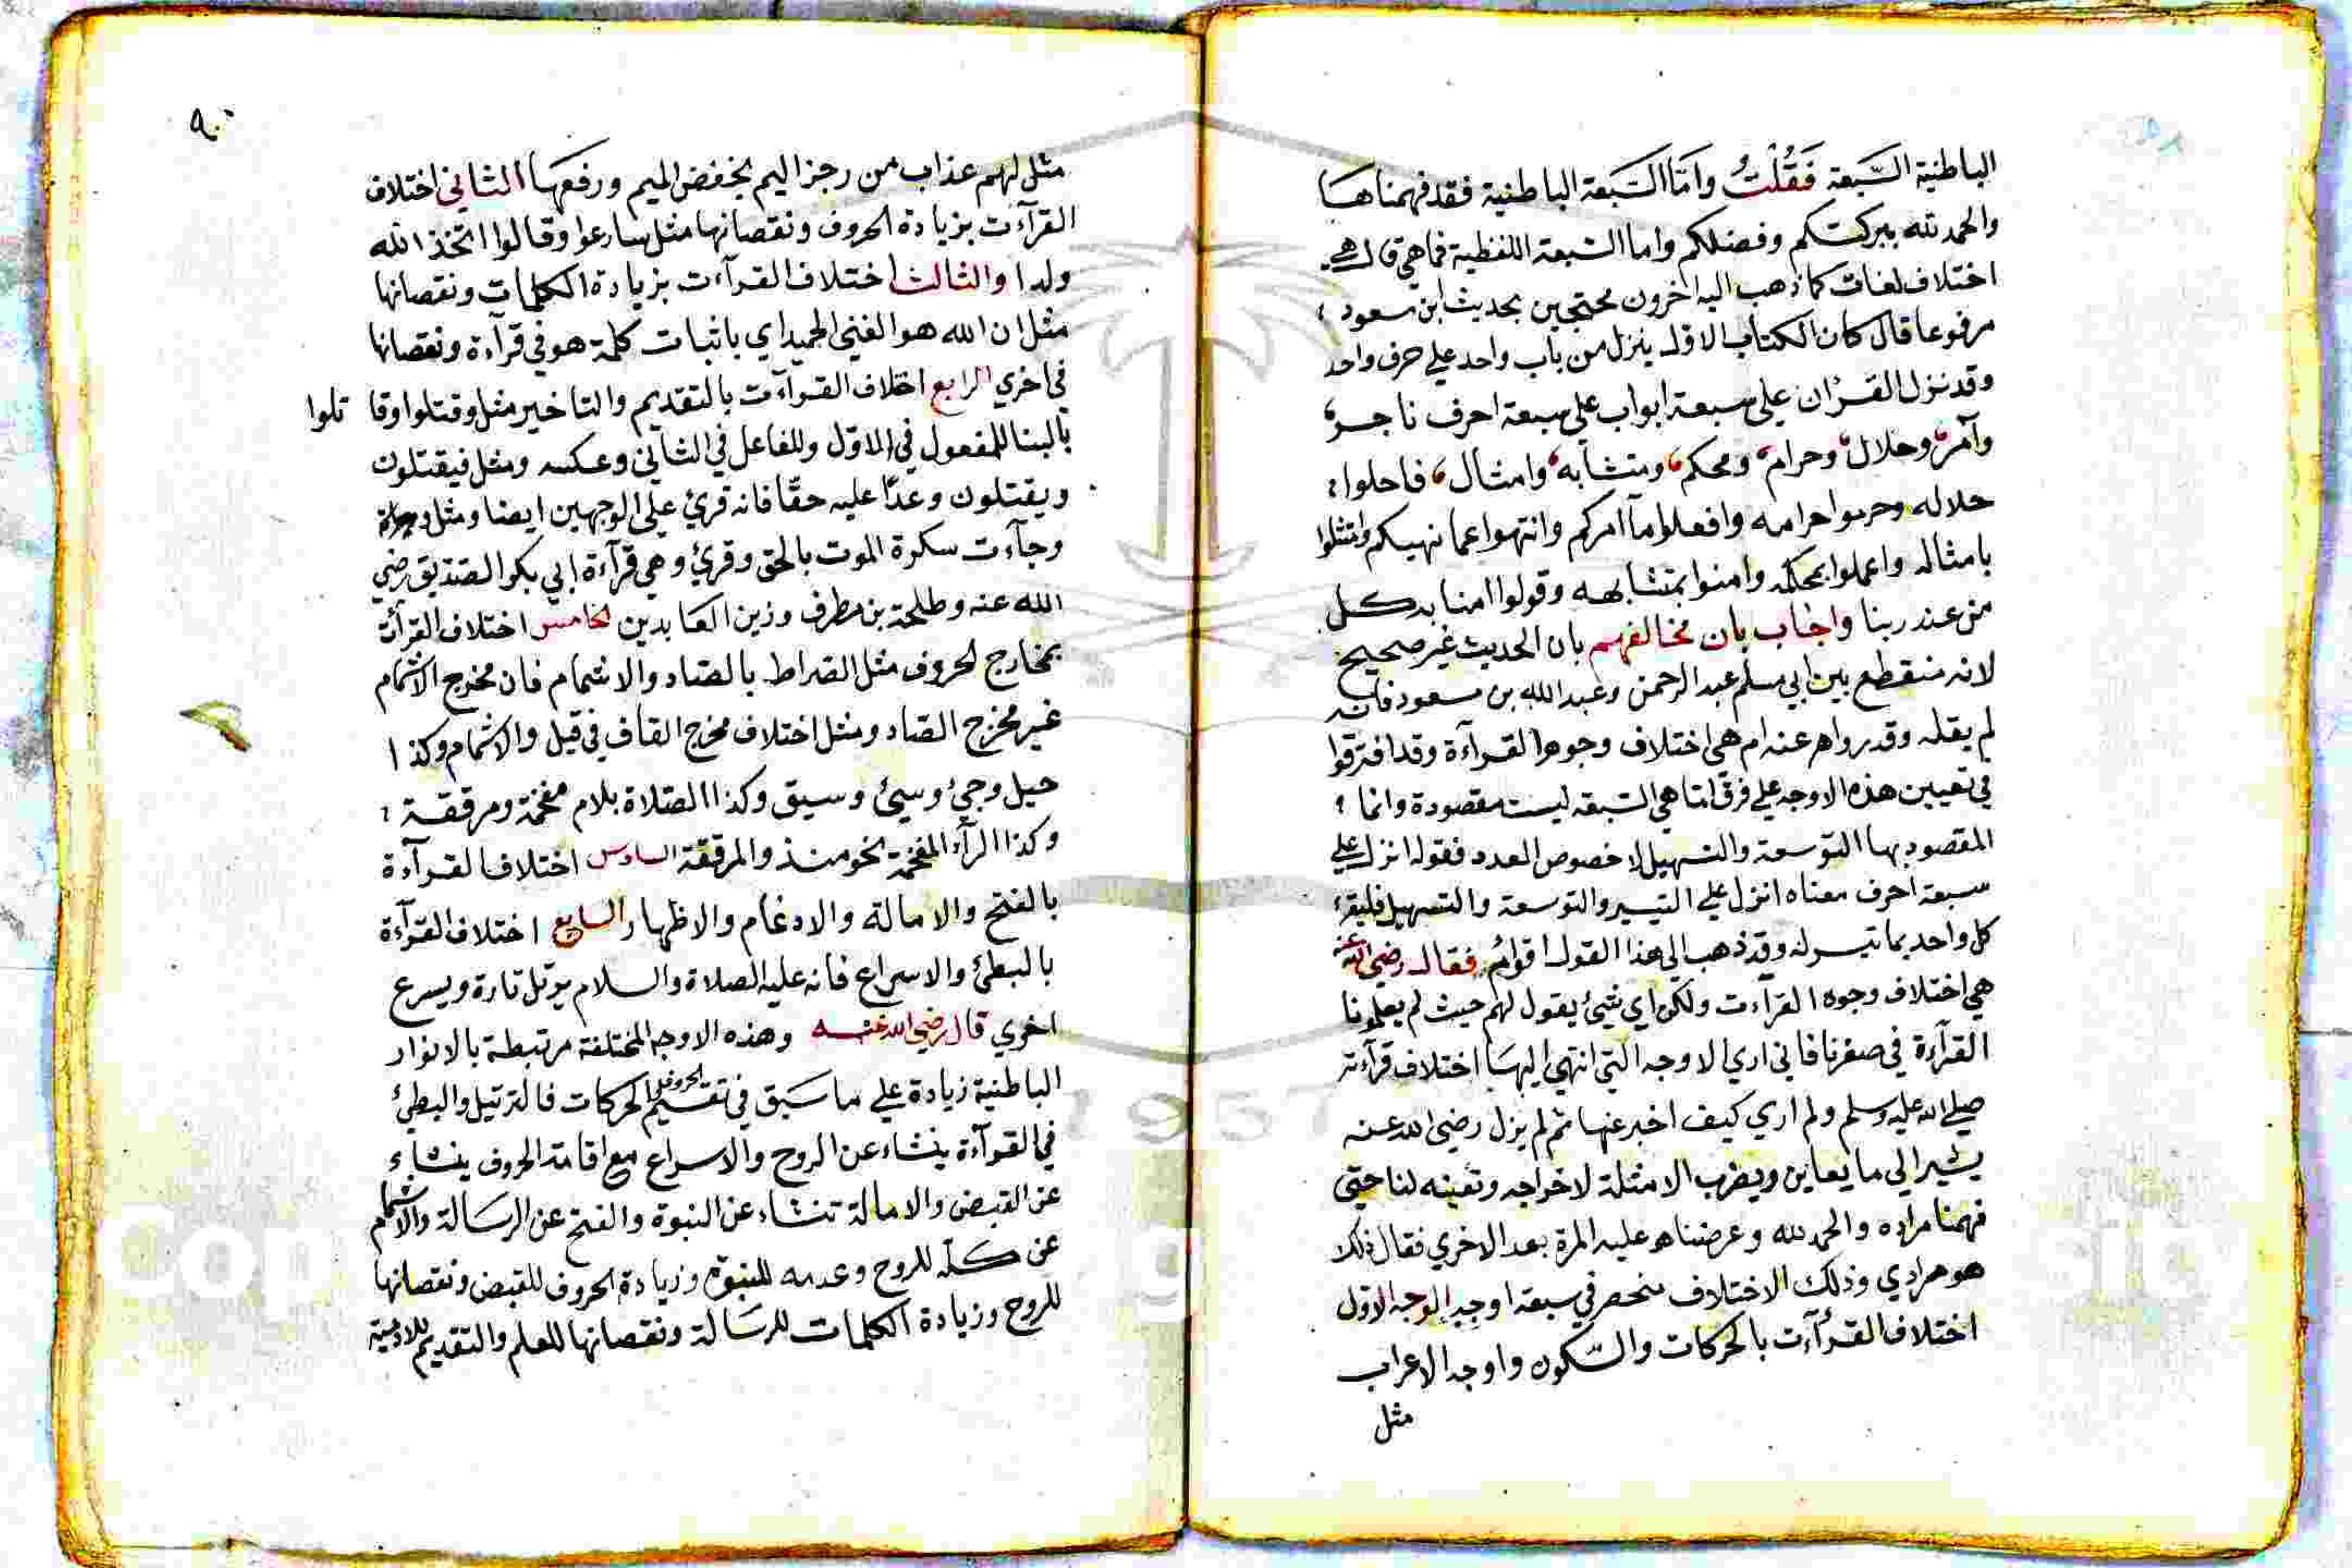 الباطنية السَّبعة فَقُلْتُ وامّا السّبعة الباطنية فقد فهمناها
والحمد لله ببركتكم وفضلكم واما السّبعة اللفظية فما هي قال هي
اختلاف لغات كما ذهب اليه اخرون محتجين بحديث ابن مسعود
مرفوعا قال كان الكتاب الاول ينزل من باب واحد علي حرف واحد
وقد نزل القرآن علي سبعة ابواب علي سبعة احرف ناجر
وآمر وحلال وحرام ومحكم ومتشابه وامثال فاحلوا
حلاله وحرموا حرامه وافعلوا ما آمركم وانتهوا عما نهيكم وامتثلوا
بامثاله واعملوا بمحكمه وامنوا بمتشابهه وقولوا امنا به كل
من عند ربنا واجاب بان مخالفهم بان الحديث غير صحيح
لانه منقطع بين ابي مسلم عبد الرحمن وعبد الله بن مسعود فانه
لم يقله وقد رواهم عنه ام هي اختلاف وجوه القرآءة وقد افترقوا
في تعيين هذه الاوجه علي فرق امّا هي السّبعه ليست مقصودة وانما
المقصود بها التوسعة والتسهيل لا خصوص العدد فقوله انزل علي
سبعة احرف معناه انزل علي التيسير والتوسعة والتسهيل فليقرء
كل واحد بما تيسر له وقد ذهب الي هذا القول اقوام فقال رضي الله عنه
هي اختلاف وجوه القرآءت ولكن اي شيئ يقول لهم حيث لم يعلمونا
القرآءة في صغرنا فاني اري الاوجه التي انتهي اليها اختلاف قرآءته
صلي الله عليه وسلم ولم اري كيف اخبر عنها ثم لم يزل رضي الله عنه
يشير الي ما يعاين ويضرب الامثلة لاخواجه وتعينه لنا حتي
فهمنا مراده والحمد لله وعرضناه عليه المرة بعد الاخري فقال ذلك
هو مرادي وذلك الاختلاف منحصر في سبعة اوجه الوجه الاول
اختلاف القرآءت بالحركات والسّكون واوجه الاعراب
مثل
٩٠
مثل لهم عذاب من رجز اليم بخفض الميم ورفعها الثاني اختلاف
القرآءت بزيادة الحروف ونقصانها مثل سارعوا وقالوا اتخذ الله
ولدا والثالث اختلاف القرآءت بزيادة الكلمات ونقصانها
مثل ان الله هو الغني الحميد اي باثبات كلمة هو في قرآءة ونقصانها
في اخري الرابع اختلاف القرآءت بالتقديم والتاخير مثل وقتلوا وقا تلوا
بالبنا للمفعول في الاوّل وللفاعل في الثاني وعكسه ومثل فيقتلون
ويقتلون وعدًا عليه حقّا فانه قرئ علي الوجهين ايضا ومثل
وجآءت سكرة الموت بالحق وقرئ وهي قرآءة ابي بكر الصّديق رضي
الله عنه وطلحة بن مطرف وزين العابدين الخامس اختلاف القرآءت
بمخارج الحروف مثل الصراط بالصاد والاشمام فان مخرج الاشمام
غير مخرج الصاد ومثل اختلاف مخرج القاف في قيل والاشمام وكذا
حيل وجئ وسيئ وسيق وكذا الصّلاة بلام مفخمة ومرققة
وكذا الرآء المفخمة نحو منذ والمرققة السادس اختلاف القرآءة
بالفتح والامالة والادغام والاظهار السابع اختلاف القرآءة
بالبطئ والاسراع فانه عليه الصلاة والسلام يرتل تارة ويسرع
اخري قال رضي الله عنه وهذه الاوجه المختلفة مرتبطة بالانوار
الباطنية زيادة علي ما سَبق في تقسيم الحروف الحركات فالترتيل والبطئ
في القرآءة ينشاء عن الروح والاسراع مع اقامة الحروف ينشاء
عن القبض والامالة تنشاء عن النبوة والفتح عن الرسَالة والاشمام
عن كلّه للروح وعدمه للنبوّة وزيادة الحروف للقبض ونقصانها
للروح وزيادة الكلمات للرسَالة ونقصانها للعلم والتقديم للادمية